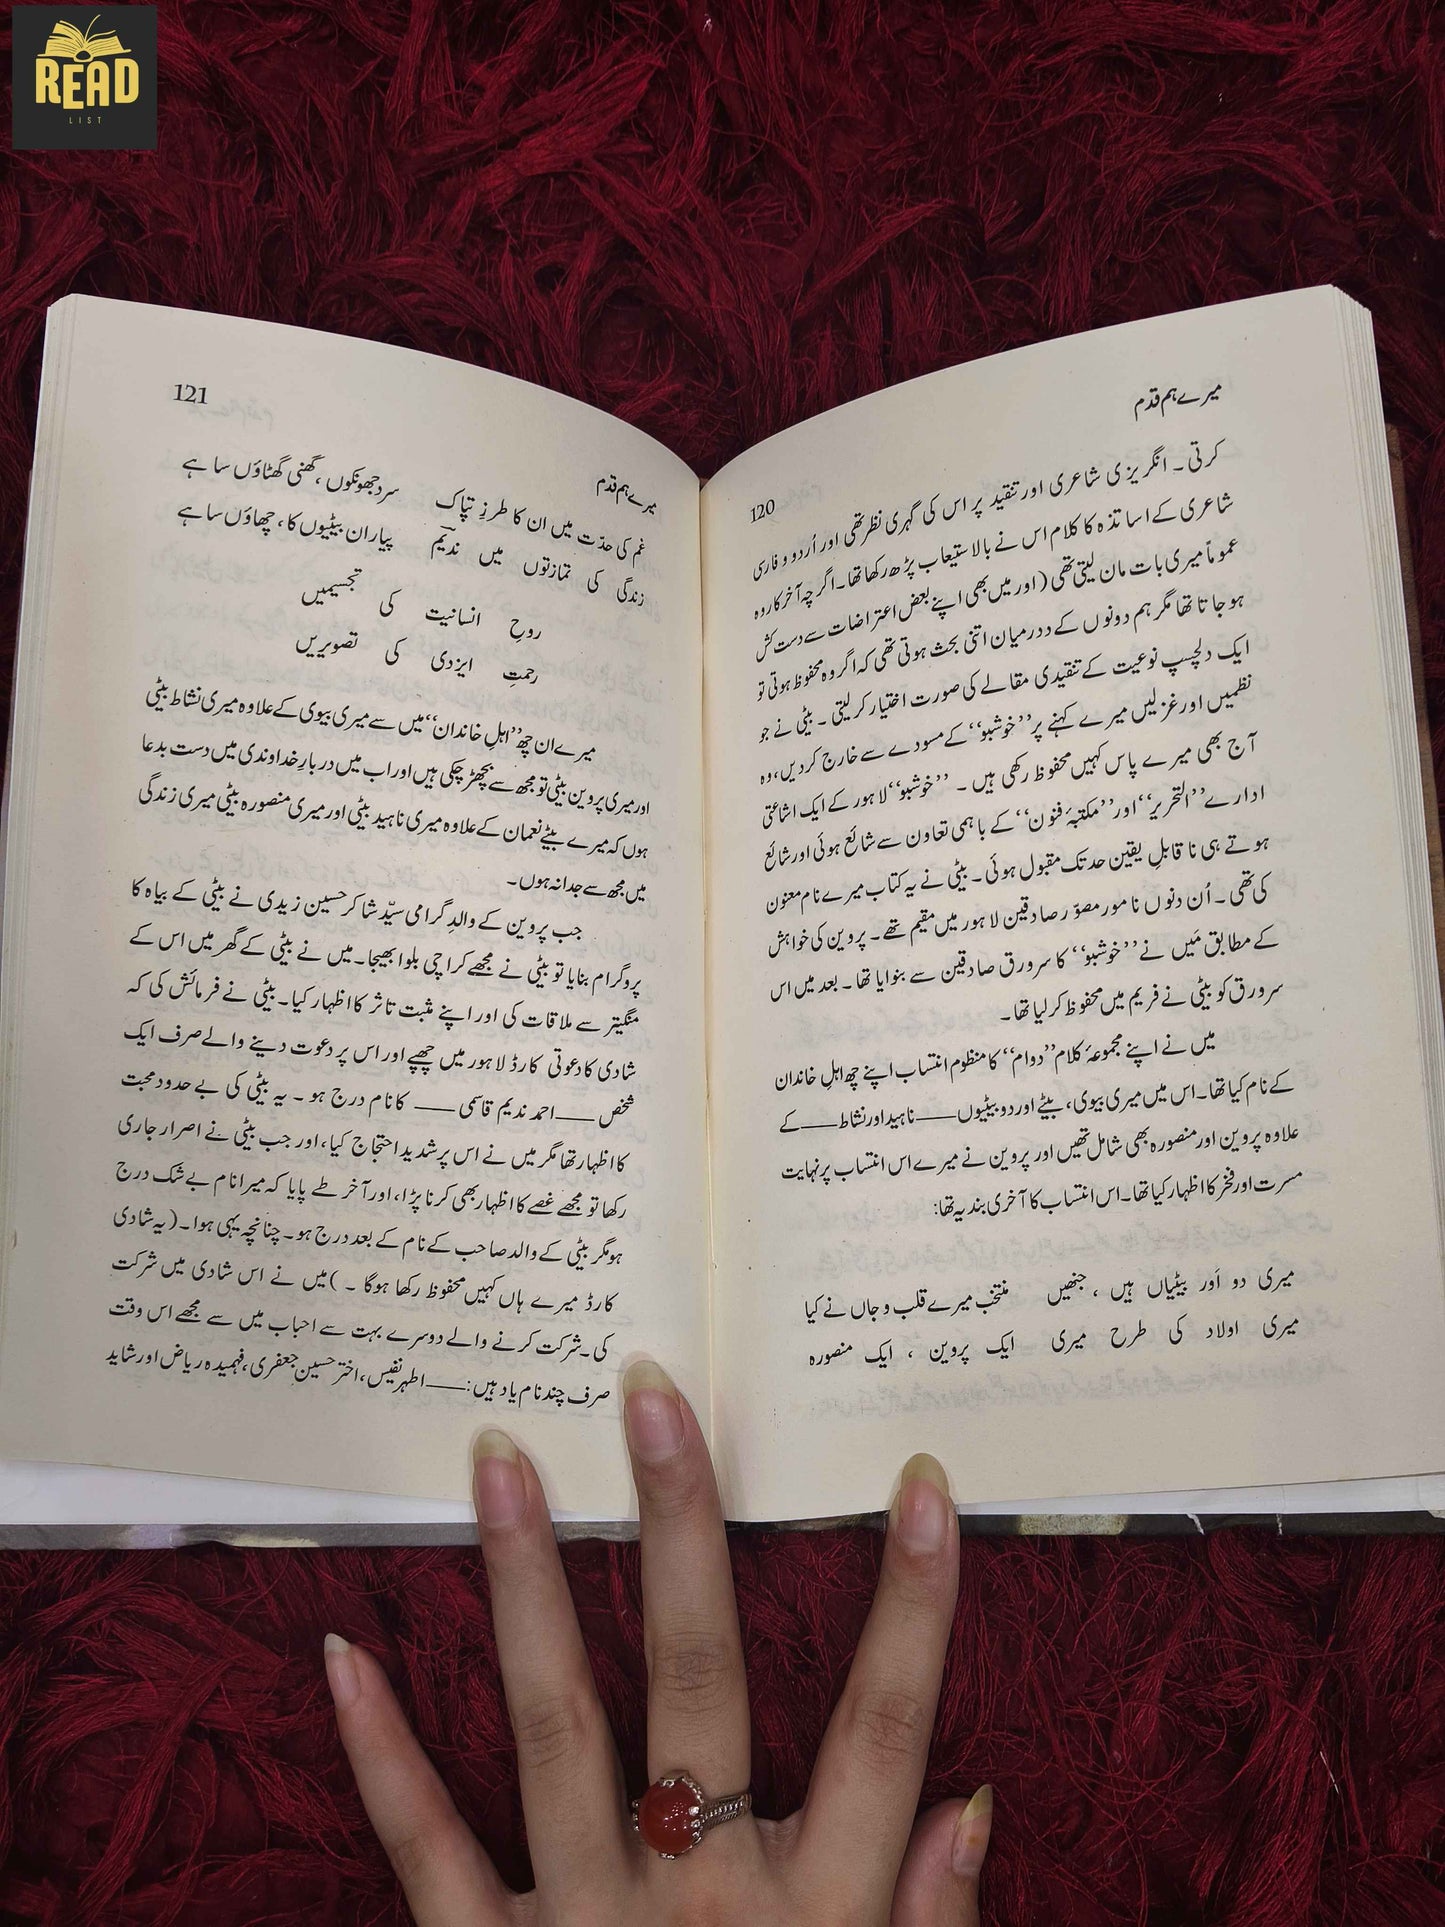 READ
LIST
میرے ہم قدم
120
کرتی۔ انگریزی شاعری اور تنقید پر اس کی گہری نظر تھی اور اُردو و فارسی
شاعری کے اساتذہ کا کلام اس نے بالاستیعاب پڑھ رکھا تھا۔ اگرچہ آخر کار وہ
عموماً میری بات مان لیتی تھی (اور میں بھی اپنے بعض اعتراضات سے دست کش
ہو جاتا تھا مگر ہم دونوں کے درمیان اتنی بحث ہوتی تھی کہ اگر وہ محفوظ ہوتی تو
ایک دلچسپ نوعیت کے تنقیدی مقالے کی صورت اختیار کر لیتی۔ بیٹی نے جو
نظمیں اور غزلیں میرے کہنے پر ’’خوشبو‘‘ کے مسودے سے خارج کر دیں، وہ
آج بھی میرے پاس کہیں محفوظ رکھی ہیں۔ ’’خوشبو‘‘ لاہور کے ایک اشاعتی
ادارے ’’التحریر‘‘ اور ’’مکتبۂ فنون‘‘ کے باہمی تعاون سے شائع ہوئی اور شائع
ہوتے ہی ناقابلِ یقین حد تک مقبول ہوئی۔ بیٹی نے یہ کتاب میرے نام معنون
کی تھی۔ اُن دنوں نامور مصوّر صادقین لاہور میں مقیم تھے۔ پروین کی خواہش
کے مطابق مَیں نے ’’خوشبو‘‘ کا سرورق صادقین سے بنوایا تھا۔ بعد میں اس
سرورق کو بیٹی نے فریم میں محفوظ کر لیا تھا۔
میں نے اپنے مجموعۂ کلام ’’دوام‘‘ کا منظوم انتساب اپنے چھ اہلِ خاندان
کے نام کیا تھا۔ اس میں میری بیوی، بیٹے اور دو بیٹیوں ــــ ناہید اور نشاط ــــ کے
علاوہ پروین اور منصورہ بھی شامل تھیں اور پروین نے میرے اس انتساب پر نہایت
مسرت اور فخر کا اظہار کیا تھا۔ اس انتساب کا آخری بند یہ تھا:
میری دو اَور بیٹیاں ہیں ، جنھیں منتخب میرے قلب و جاں نے کیا
میری اولاد کی طرح میری ایک پروین ، ایک منصورہ
میرے ہم قدم
121
غم کی حدّت میں ان کا طرزِ تپاک سرد جھونکوں ، گھنی گھٹاؤں سا ہے
زندگی کی تمازتوں میں ندیم پیار ان بیٹیوں کا ، چھاؤں سا ہے
روحِ انسانیت کی تجسیمیں
رحمتِ ایزدی کی تصویریں
میرے ان چھ ’’اہلِ خاندان‘‘ میں سے میری بیوی کے علاوہ میری نشاط بیٹی
اور میری پروین بیٹی تو مجھ سے بچھڑ چکی ہیں اور اب میں دربارِ خداوندی میں دست بدعا
ہوں کہ میرے بیٹے نعمان کے علاوہ میری ناہید بیٹی اور میری منصورہ بیٹی میری زندگی
میں مجھ سے جدا نہ ہوں۔
جب پروین کے والدِ گرامی سیّد شاکر حسین زیدی نے بیٹی کے بیاہ کا
پروگرام بنایا تو بیٹی نے مجھے کراچی بلوا بھیجا۔ میں نے بیٹی کے گھر میں اس کے
منگیتر سے ملاقات کی اور اپنے مثبت تاثر کا اظہار کیا۔ بیٹی نے فرمائش کی کہ
شادی کا دعوتی کارڈ لاہور میں چھپے اور اس پر دعوت دینے والے صرف ایک
شخص ــــ احمد ندیم قاسمی ــــ کا نام درج ہو۔ یہ بیٹی کی بے حدود محبت
کا اظہار تھا مگر میں نے اس پر شدید احتجاج کیا، اور جب بیٹی نے اصرار جاری
رکھا تو مجھے غصے کا اظہار بھی کرنا پڑا، اور آخر طے پایا کہ میرا نام بے شک درج
ہو مگر بیٹی کے والد صاحب کے نام کے بعد درج ہو۔ چنانچہ یہی ہوا۔ (یہ شادی
کارڈ میرے ہاں کہیں محفوظ رکھا ہوگا۔ ) میں نے اس شادی میں شرکت
کی۔ شرکت کرنے والے دوسرے بہت سے احباب میں سے مجھے اس وقت
صرف چند نام یاد ہیں: ــــ اطہر نفیس، اختر حسین جعفری، فہمیدہ ریاض اور شاید